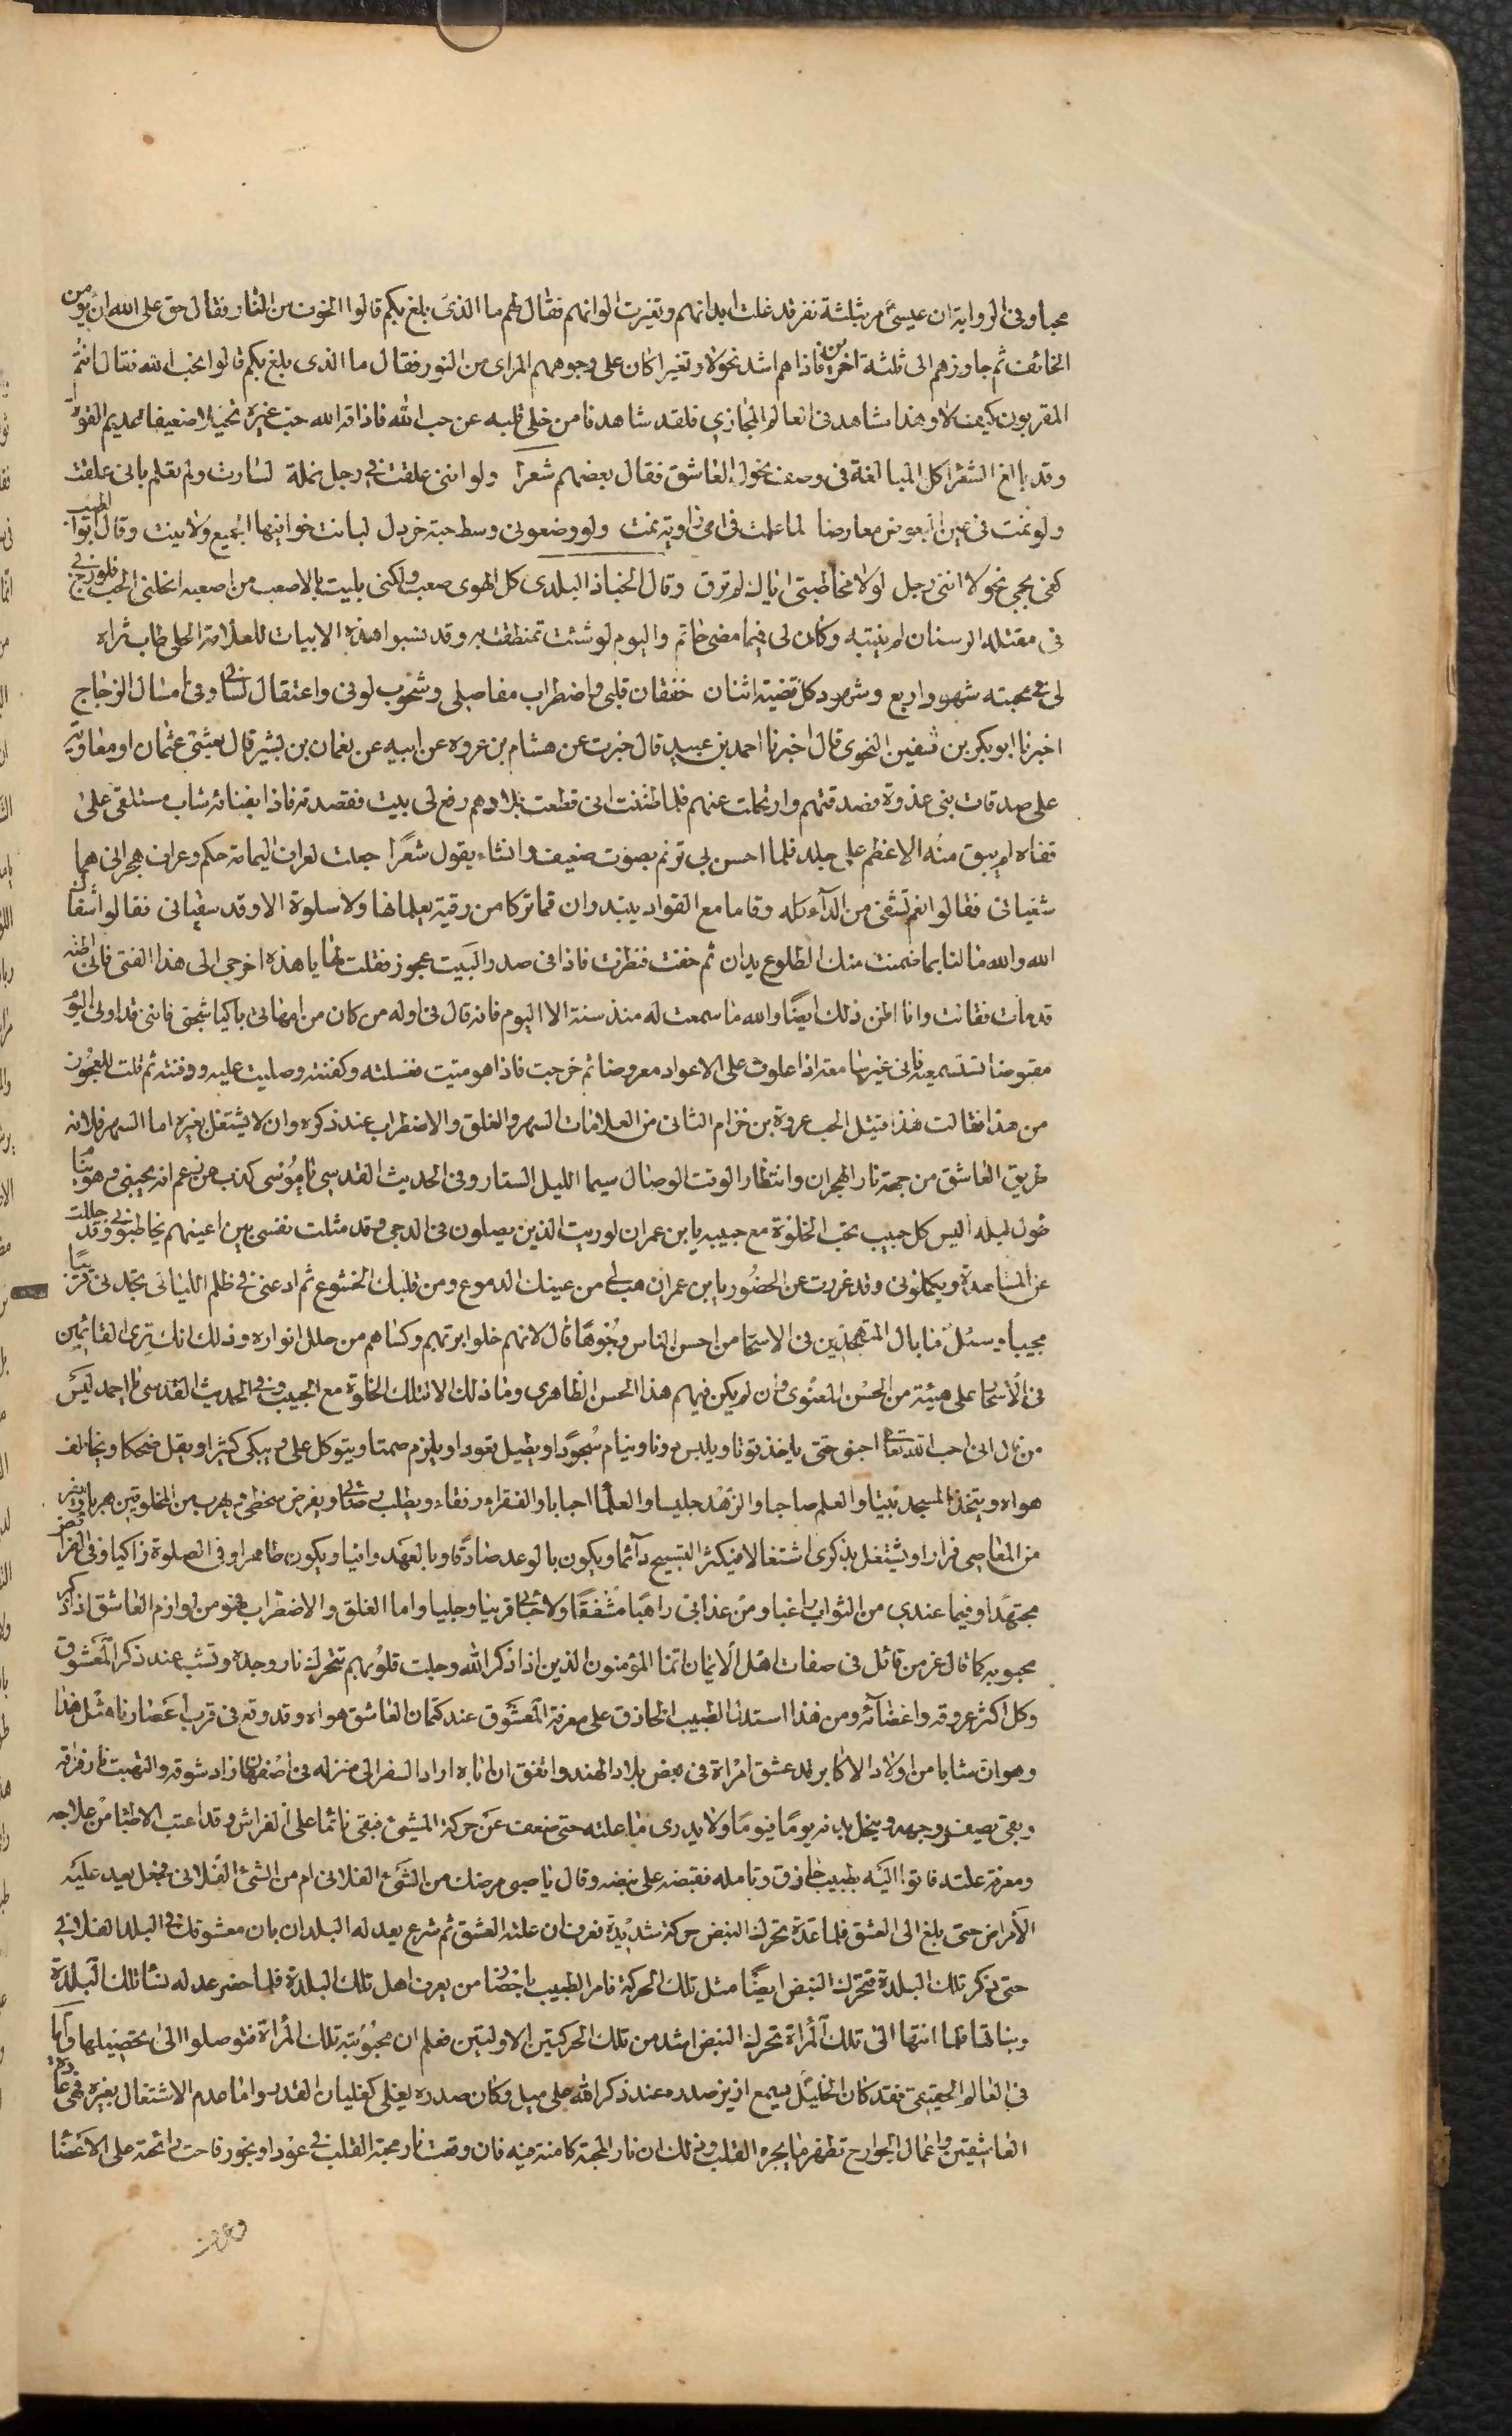 محبا وفى الرواية ان عيسى مر بثلثة نفر قد نحلت ابدانهم وتغيرت الوانهم فقال لهم ما الذى بلغ بكم قالوا الخوف من النار فقال حق على الله ان يؤمن
الخائف ثم جاوزهم الى ثلثة اخرين فاذا هم اشد نحولا وتغيرا كان على وجوههم المراى من النور فقال ما الذى بلغ بكم قالوا نحب الله فقال انتم
المقربون كيف لا وهذا مشاهد فى العالم المجازي فلقد شاهدنا من خلى قلبه عن حب الله فاذاقه الله حب غيره نحيلا ضعيفا عديم القوة
وقد بالغ الشعرا كل المبالغة فى وصف نحول العاشق فقال بعضهم شعرا ولو اننى علقت فى رجل نملة لسارت ولم تعلم بانى علقت
ولو نمت فى عين البعوض معارضا لما علمت فى اى زاوية نمت ولو وضعونى وسط حبة خردل لباتت خوافيها الجميع ولا بينت وقال ابو الطيب
كفى بجسمى نحولا اننى رجل لولا مخاطبتى اياك لم ترنى وقال الخباز البلدى كل الهوى صعب ولكنى بليت بالاصعب من اصعبه انحلنى الحب فلو زج بى
فى مقلة الوسنان لم ينتبه وكان لى فيما مضى خاتم واليوم لو شئت تمنطقت به وقد نسبوا هذه الابيات للعلامة الحلى طاب ثراه
لى فى محبته شهود اربع وشهود كل قضية اثنان خفقان قلبى واضطراب مفاصلى وشحوب لونى واعتقال لسانى وفى امثال الزجاج
اخبرنا ابو بكر بن شقير النحوى قال اخبرنا احمد بن عبيد قال خبرت عن هشام بن عروه عن ابيه عن نعمان بن بشير قال بعثنى عثمان او معاوية
على صدقات بنى عذرة فصدقتهم وارتحلت عنهم فلما ظننت انى قطعت بلادهم رفع لى بيت فقصدته فاذا بفنائه شاب مستلقى على
قفاه لم يبق منه الا عظم على جلد فلما احس بى ترنم بصوت ضعيف وانشاء يقول شعرا جعلت لعراف اليمامة حكمه وعراف هجر ان هما
شفيانى فقالوا نعم تشفى من الداء كله وقاما مع العواد يبتدران فما تركا من رقية يعلمانها ولا سلوة الا وقد سقيانى فقالوا شفاك
الله والله ما لنا بما ضمنت منك الضلوع يدان ثم خفت فنظرت فاذا فى صدر البيت عجوز فقلت لها يا هذه اخرجى الى هذا الفتى فانى اظنه
قد مات فقالت وانا اظن ذلك ايضا والله ما سمعت له منذ سنة الا اليوم فانه قال فى اوله من كان من امهاتى باكيا شجنى فاننى قد ارانى اليوم
مقبوضا تسمعيه فانى غير سامعه اذا علوت على الاعواد معروضا ثم خرجت فاذا هو ميت فغسلته وكفنته وصليت عليه ودفنته ثم قلت للعجوز
من هذا فقالت هذا قتيل الحب عروة بن حزام الثانى من العلامات السهر والقلق والاضطراب عند ذكره وان لا يشتغل بغيره اما السهر فلانه
طريق العاشق من جهة نار الهجران وانتظار الوقت الوصال سيما الليل الستار وفى الحديث القدسى يا موسى كذب من زعم انه يحبنى وهو ينام
طول ليله اليس كل حبيب يحب الخلوة مع حبيبه يا بن عمران لو رايت الذين يصلون فى الدجى وقد مثلت نفسى بين اعينهم يخاطبونى وقد جللت
عن المشاهدة ويكلمونى وقد غررت عن الحضور يا بن عمران هب لى من عينك الدموع ومن قلبك الخشوع ثم ادعنى فى ظلم الليالى تجدنى قريبا
مجيبا وسئل ما بال المتهجدين فى الاسحار من احسن الناس وجوها قال لانهم خلوا بربهم وكساهم من حلل انواره وذلك انك ترى القائمين
فى الأسحار على هيئة من الحسن المعنوى وان لم يكن فيهم هذا الحسن الظاهرى وما ذلك الا لتلك الخلوة مع الحبيب وفى الحديث القدسى يا احمد ليس
من قال انى احب الله تعالى احبنى حتى ياخذ قوتا ويلبس دونا وينام سجودا ويطيل قعودا ويلزم صمتا ويتوكل على ويبكى كثيرا ويقل ضحكا ويخالف
هواه ويتخذ المسجد بيتا والعلم صاحبا والزهد جليسا والعلما احبابا والفقراء رفقاء ويطلب رضاى ويفر من سخطى ويهرب من المخلوقين هربا ويفر
من المعاصى فرارا ويشتغل بذكرى اشتغالا فيكثر التسبيح دائما ويكون بالوعد صادقا وبالعهد وافيا ويكون طاهرا وفى الصلوة زاكيا وفى الفرائض
مجتهدا وفيما عندى من الثواب راغبا ومن عذابى راهبا مشفقا ولاحبائى قرينا وجليسا واما القلق والاضطراب فهو من لوازم العاشق اذا ذكر
محبوبه كما قال عز من قائل فى صفات اهل الايمان انما المؤمنون الذين اذا ذكر الله وجلت قلوبهم تتحرك نار وجده وتشب عند ذكر المعشوق
وكل اكثر عروقه واعضائه ومن هذا استدل الطبيب الحاذق على معرفة المعشوق عند كتمان العاشق هواه وقد وقع فى قرب اعصارنا مثل هذا
وهو ان شابا من اولاد الاكابر قد عشق امراة فى بعض بلاد الهند واتفق ان اباه اراد السفر الى منزله فى اصفهان فزاد شوقه والتهبت نار فراقه
وبقى يصفر وجهه وينحل بدنه يوما فيوما ولا يدرى ما علته حتى ضعف عن حركة المشى فبقى نائما على الفراش وقد اعتب الاطبا من علاجه
ومعرفة علته فاتوا اليه بطبيب حاذق وتامله فقبضه على نبضه وقال يا صبى مرضك من الشى الفلانى ام من الشى الفلانى فجعل يعد عليه
الأمراض حتى بلغ الى العشق فلما عده تحرك النبض حركة شديدة فعرف ان علته العشق ثم شرع يعد له البلدان بان معشوقك فى البلد الفلانى
حتى ذكر تلك البلدة فتحرك النبض ايضا مثل تلك الحركة فامر الطبيب باحضار من يعرف اهل تلك البلدة فلما حضر عد له نسا تلك البلدة
وبناتها فلما انتها الى تلك المراة تحرك النبض اشد من تلك الحركتين الاوليتين فعلم ان محبوبته تلك المراة فتوصلوا الى تحصيلها واما
فى العالم الحقيقى فقد كان الخليل يسمع ازيز صدره عند ذكر الله على ميل وكان صدره يغلى كغليان القدر واما عدم الاشتغال بغيره فهى عادة
العاشقين واعمال الجوارح تظهر ما يجره القلب وذلك ان نار المحبة كامنة فيه فان وقعت نار محبة القلب فى عود او بخور فاحت رائحته على الاعضا